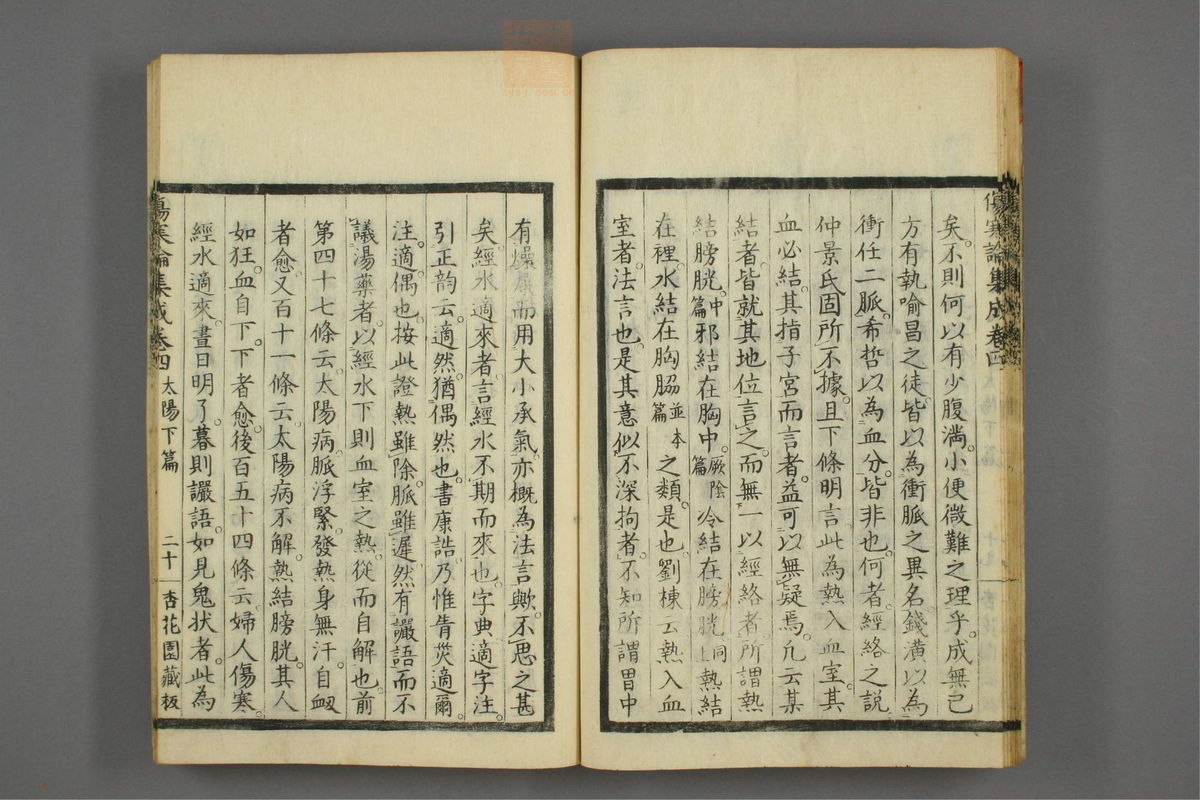 傷寒論集成卷四
矣。不則何以有少腹満。小便微難之理乎。成無已
方有執喻昌之徒。皆以為衝脈之異名。錢潢以為
衝任二脈。希哲以為血分。皆非也。何者。經絡之説
仲景氏固所不據。且下條明言此為熱入血室。其
血必結。其指子宮而言者。益可以無疑焉。凡云某
結者。皆就其地位言之。而無一以經絡者。所謂熱
結膀胱。中篇邪結在胸中。厥陰篇冷結在膀胱。同上熱結
在裡。水結在胸脇並本篇之類。是也。劉棟云。熱入血
室者。法言也。是其意似不深拘者。不知所謂胃中
有燥屎而用大小承氣。亦概為法言歟。不思之甚
矣。經水適來者。言經水不期而來也。字典適字注。
引正韵云。適然猶偶然也。書康誥。乃惟眚災適爾
注。適偶也。按此證熱雖除。脈雖遲。然有讝語而不
議湯藥者。以經水下則血室之熱。從而自解也。前
第四十七條云。太陽病。脈浮緊。發熱身無汗。自衂
者愈。又百十一條云。太陽病不解。熱結膀胱。其人
如狂。血自下。下者愈。後百五十四條云。婦人傷寒。
經水適來。晝日明了。暮則讝語。如見鬼状者。此為
傷寒論集成卷四 太陽下篇 二十 杏花園藏板